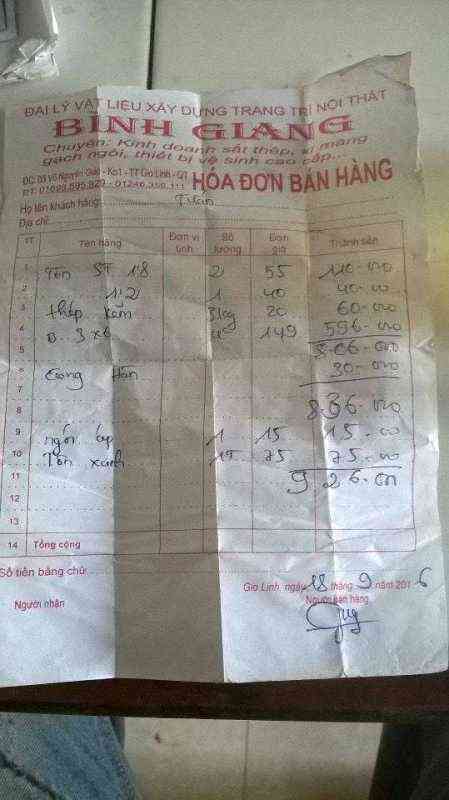 ĐẠI LÝ VẬT LIỆU XÂY DỰNG TRANG TRÍ NỘI THẤT
BÌNH GIANG
Chuyên: Kinh doanh sắt thép, xi măng
gạch ngói, thiết bị vệ sinh cao cấp...
HÓA ĐƠN BÁN HÀNG
Họ tên khách hàng:
Địa chỉ:
TT Tên hàng Đơn vị tính Số lượng Đơn giá Thành tiền
1 Tôn ST 1.8 2 55 110.000
2 1.2 1 40 40.00
3 thép kẽm 3kg 20 60.000
4 3x6 4 149 596.000
5 8.06.000
6 Công Hàn 30.000
7
8 8.36.000
9 ngói úp 1 15 15.00
10 Tôn xanh 75 75.00
11 9.26.000
12
13
14 Tổng cộng
Số tiền bằng chữ
Gio Linh, ngày 18 tháng 9 năm 2016
Người nhận Người bán hàng